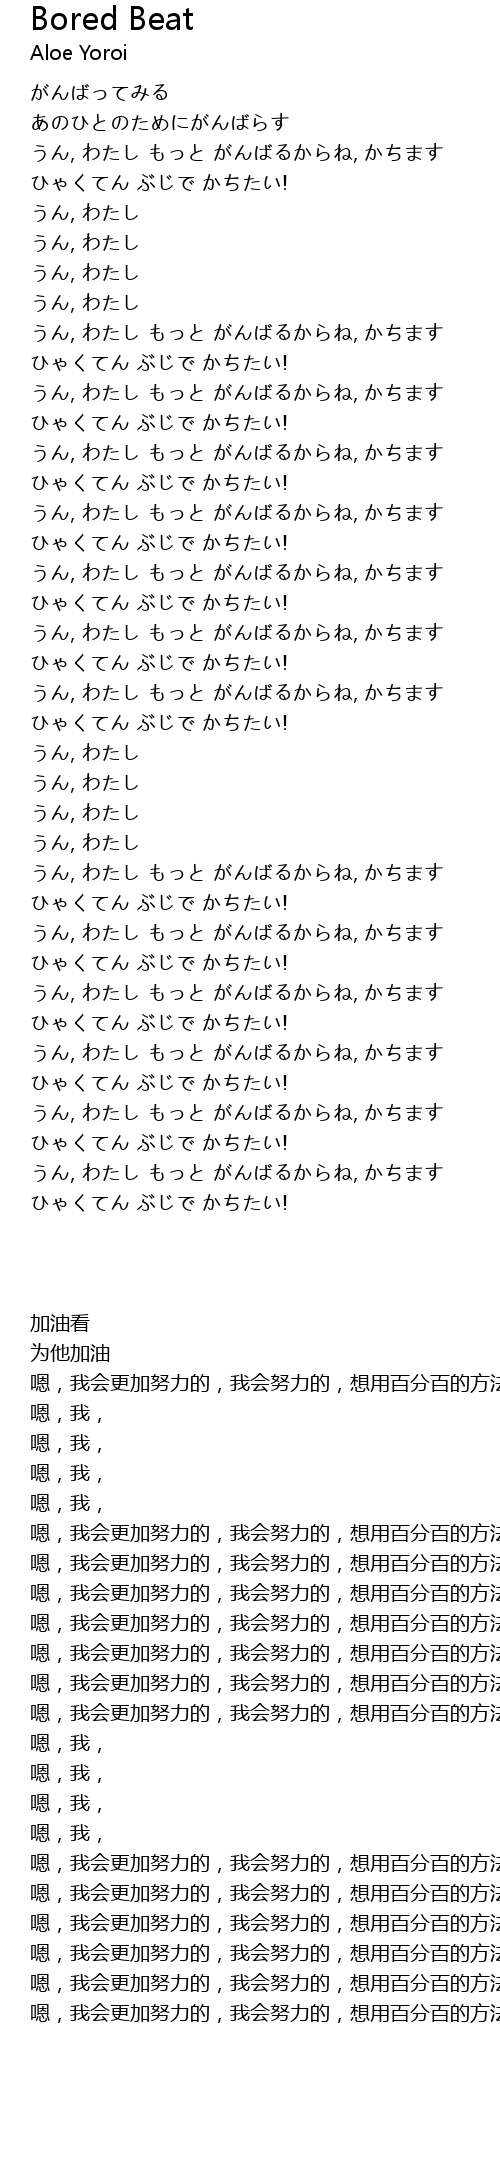 Bored Beat
Aloe Yoroi
がんばってみる
あのひとのためにがんばらす
うん, わたし もっと がんばるからね, かちます
ひゃくてん ぶじで かちたい!
うん, わたし
うん, わたし
うん, わたし
うん, わたし
うん, わたし もっと がんばるからね, かちます
ひゃくてん ぶじで かちたい!
うん, わたし もっと がんばるからね, かちます
ひゃくてん ぶじで かちたい!
うん, わたし もっと がんばるからね, かちます
ひゃくてん ぶじで かちたい!
うん, わたし もっと がんばるからね, かちます
ひゃくてん ぶじで かちたい!
うん, わたし もっと がんばるからね, かちます
ひゃくてん ぶじで かちたい!
うん, わたし もっと がんばるからね, かちます
ひゃくてん ぶじで かちたい!
うん, わたし もっと がんばるからね, かちます
ひゃくてん ぶじで かちたい!
うん, わたし
うん, わたし
うん, わたし
うん, わたし
うん, わたし もっと がんばるからね, かちます
ひゃくてん ぶじで かちたい!
うん, わたし もっと がんばるからね, かちます
ひゃくてん ぶじで かちたい!
うん, わたし もっと がんばるからね, かちます
ひゃくてん ぶじで かちたい!
うん, わたし もっと がんばるからね, かちます
ひゃくてん ぶじで かちたい!
うん, わたし もっと がんばるからね, かちます
ひゃくてん ぶじで かちたい!
うん, わたし もっと がんばるからね, かちます
ひゃくてん ぶじで かちたい!
加油看
为他加油
嗯，我会更加努力的，我会努力的，想用百分百的方法
嗯，我，
嗯，我，
嗯，我，
嗯，我，
嗯，我会更加努力的，我会努力的，想用百分百的方法
嗯，我会更加努力的，我会努力的，想用百分百的方法
嗯，我会更加努力的，我会努力的，想用百分百的方法
嗯，我会更加努力的，我会努力的，想用百分百的方法
嗯，我会更加努力的，我会努力的，想用百分百的方法
嗯，我会更加努力的，我会努力的，想用百分百的方法
嗯，我会更加努力的，我会努力的，想用百分百的方法
嗯，我，
嗯，我，
嗯，我，
嗯，我，
嗯，我会更加努力的，我会努力的，想用百分百的方法
嗯，我会更加努力的，我会努力的，想用百分百的方法
嗯，我会更加努力的，我会努力的，想用百分百的方法
嗯，我会更加努力的，我会努力的，想用百分百的方法
嗯，我会更加努力的，我会努力的，想用百分百的方法
嗯，我会更加努力的，我会努力的，想用百分百的方法